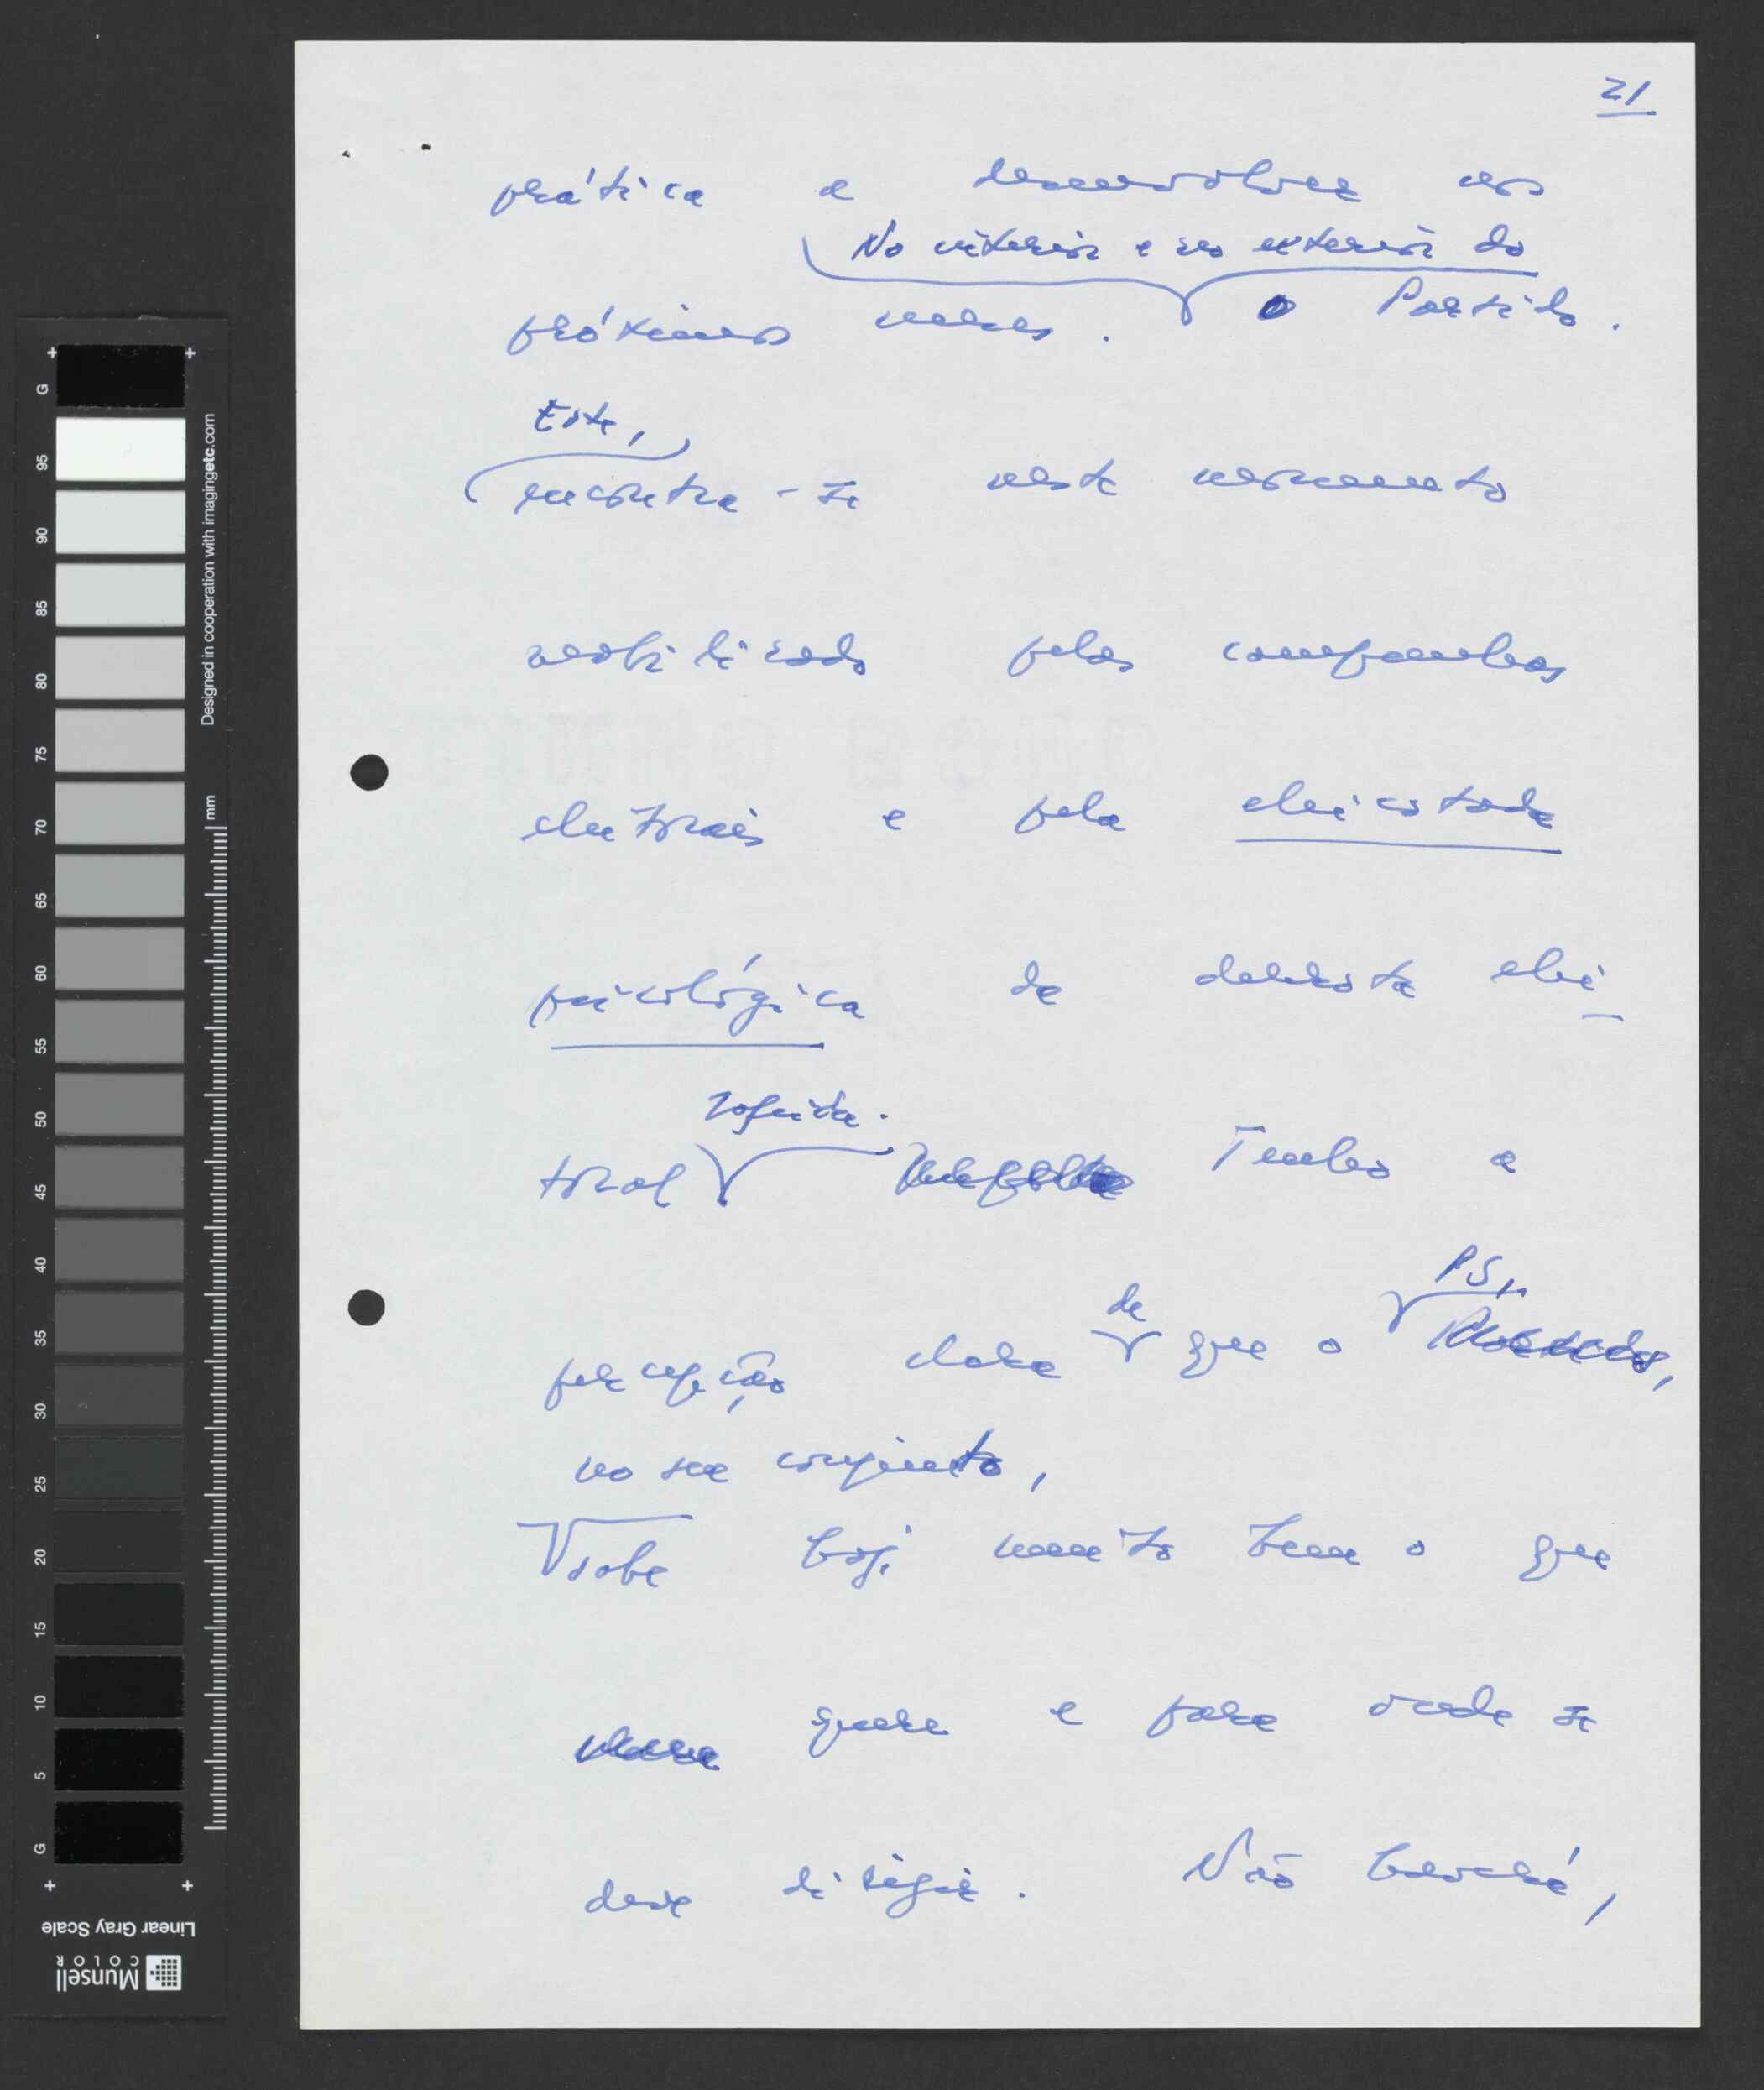 21
prática a desenvolver nos
No interior e no exterior do
próximos meses. o Partido.
Este,
encontra-se neste momento
mobilizado pelas campanhas
eleitorais e pela
psicológica da derrota elei-
sofrida.
toral Tenho a
de PS,
percepção clara que o
no seu conjunto,
sabe hoje muito bem o que
quer e para onde se
deve dirigir. Não haverá,
Designed in cooperation with imagingetc.com
mm
G 95 90 85 80 75 70 65 60 55 50 45 40 35 30 25 20 15 10 5 G
Linear Gray Scale
Munsell
COLOR